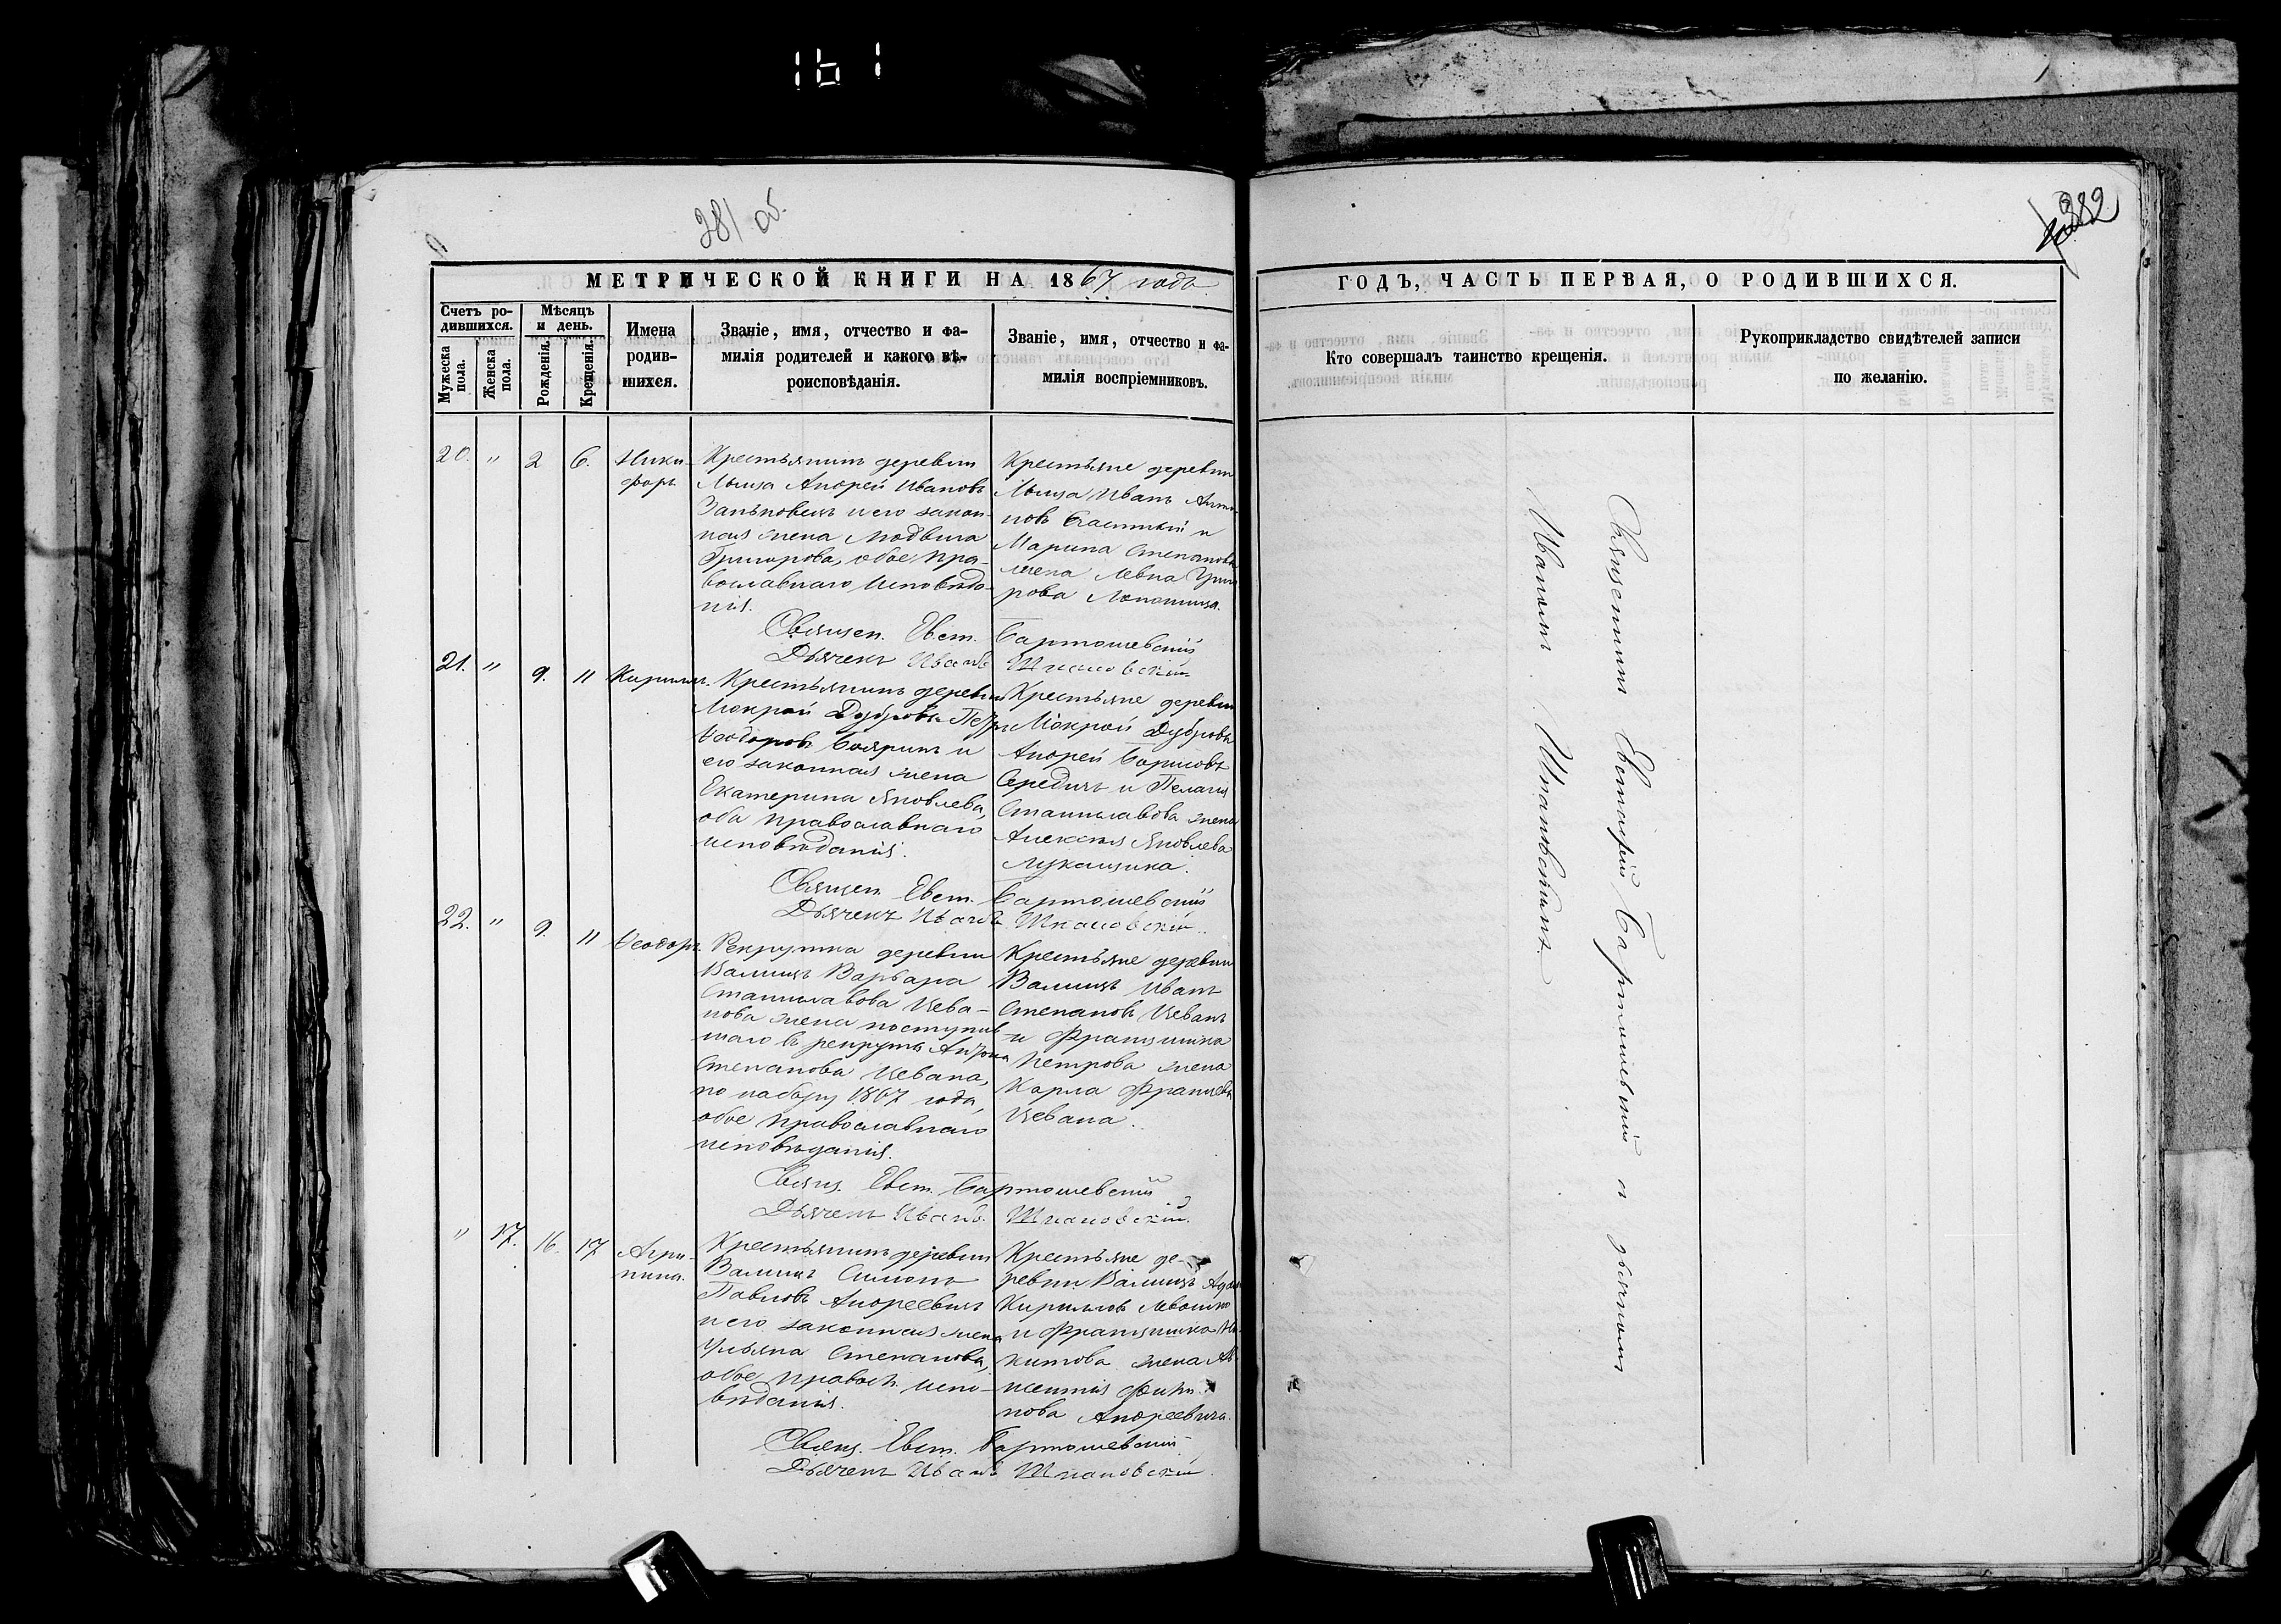 161
281 об.
382
МЕТРИЧЕСКОЙ КНИГИ НА 1867 года
ГОДЪ, ЧАСТЬ ПЕРВАЯ, О РОДИВШИХСЯ.
Счетъ ро-
дившихся.
Мужеска
пола.
Женска
пола.
Мѣсяцъ
и день.
Рожденія.
Крещенія.
Имена
родив-
шихся.
Званіе, имя, отчество и фа-
милія родителей и какого вѣ-
роисповѣданія.
Званіе, имя, отчество и фа-
милія воспріемниковъ.
Кто совершалъ таинство крещенія.
Рукоприкладство свидѣтелей записи
по желанію.
20. " 2 6. Ники-
форъ
Крестьянинъ деревни
Лыща Андрей Ивановъ
и его закон-
ная жена Людвига
Григорова, обое пра-
вославнаго исповѣда-
нія.
Крестьяне деревни
Лыща Иванъ Анто-
новъ и
Марина Степанова
жена
рова
Священ. Евст. Бартошевскій
Дьячекъ Иванъ Шкановскій
21. " 9. 11 Кириллъ.
Крестьянинъ деревни
Мокрой Дубровы Петръ
Ѳеодоровъ Бояринъ и
его законная жена
Екатерина Яковлева,
оба православнаго
исповѣданія.
Крестьяне деревни
Мокрой Дубровы
Андрей Борисовъ
Середичъ и Пелагія
Станиславова жена
Алексѣя Яковлева
Лукашика.
Священ. Евст. Бартошевскій
Дьячекъ Иванъ Шкановскій.
22. " 9. 11 Ѳеодоръ.
Рекрутка деревни
Валищъ Варвара
Станиславова Цева-
нова жена поступив-
шаго в рекруты Антона
Степанова Цевана,
по набору 1867 года,
обое православнаго
исповѣданія.
Крестьяне деревни
Валищъ Иванъ
Степановъ Цеванъ
и Францишка
Петрова жена
Карла Францева
Цевана.
Свящ. Евст. Бартошевскій
Дьячекъ Иванъ Шкановскій.
" 17. 16. 17 Агри-
пина.
Крестьянинъ деревни
Валищъ Симонъ
Павловъ Андреевичъ
и его законная жена
Ульяна Степанова,
обое правосл. испо-
вѣданія.
Крестьяне де-
ревни Валищъ Адамъ
Кирилловъ Левошко
и Францишка Ни-
китова жена
нова Андреевича.
Свящ. Евст. Бартошевскій
Дьячекъ Иванъ Шкановскій.
Священникъ Евстафій Бартошевскій съ дьячкомъ
Иваномъ Шкановскимъ.